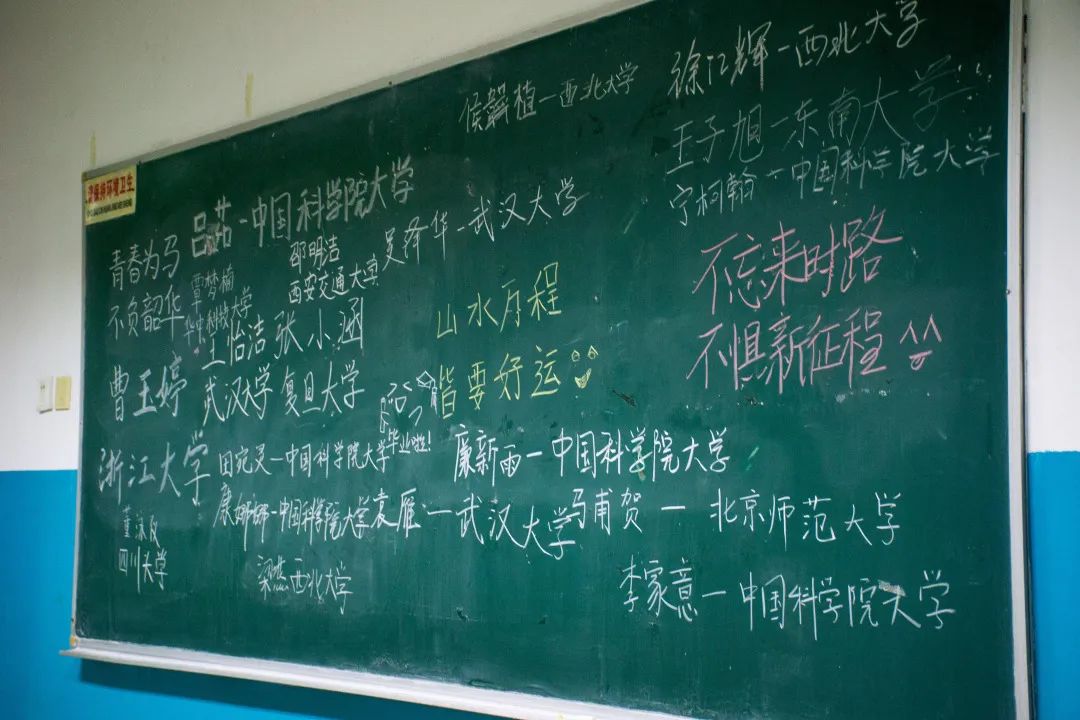 侯韫植-西北大学
徐江辉-西北大学
王子旭-东南大学!!!
宁柯翰-中国科学院大学
保持环境卫生
吕茹-中国科学院大学
邵明洁
西安交通大学
吴泽华-武汉大学
青春为马
不负韶华
覃梦楠
华中科技大学
王怡洁
武汉大学
张小涵
复旦大学
山水万程
皆要好运
不忘来时路
不惧新征程
曹玉婷
浙江大学
毕业啦!
田宛灵-中国科学院大学
廉新雨-中国科学院大学
康娜娜-中国科学院大学
袁雁-武汉大学
马甫贺-北京师范大学
四川大学
梁燕西北大学
李家意-中国科学院大学